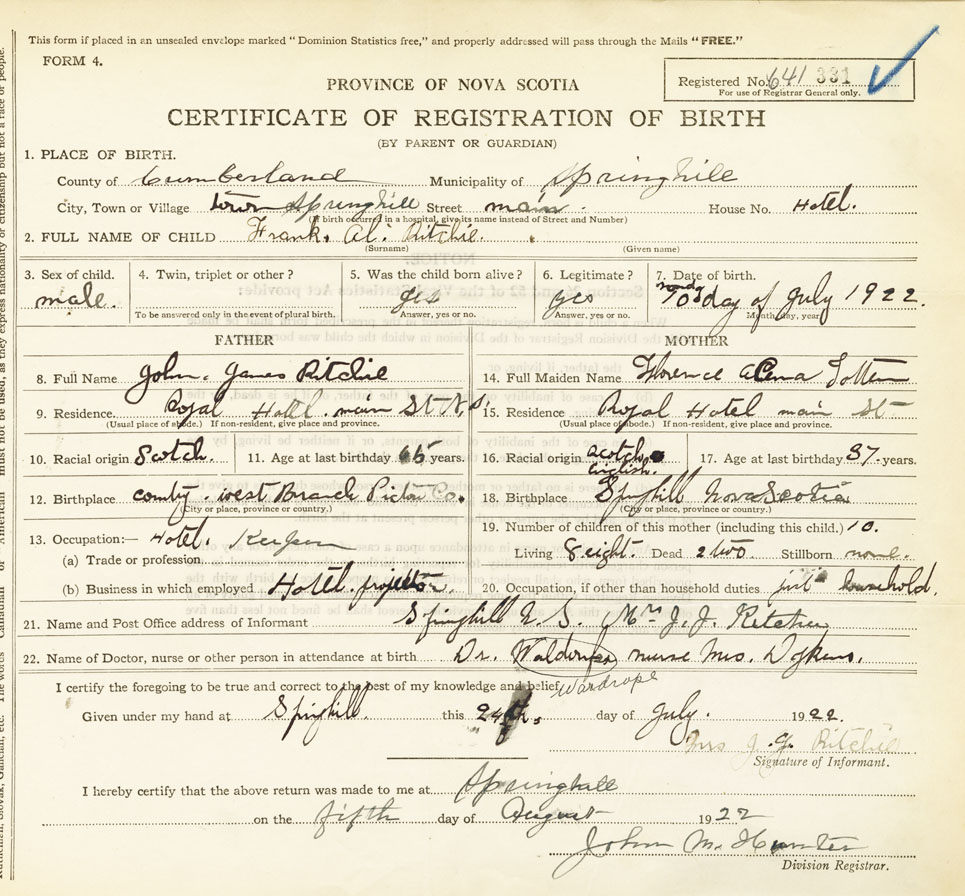 This form if placed in an unsealed envelope marked "Dominion Statistics free," and properly addressed will pass through the Mails "FREE."
FORM 4.
Registered No. 641 331
For use of Registrar General only.
PROVINCE OF NOVA SCOTIA
CERTIFICATE OF REGISTRATION OF BIRTH
(BY PARENT OR GUARDIAN)
1. PLACE OF BIRTH.
County of Cumberland Municipality of Springhill
City, Town or Village town Springhill Street main. House No. Hotel.
(If birth occurred in a hospital, give its name instead of Street and Number)
2. FULL NAME OF CHILD Frank. Al. Ritchie.
(Surname) (Given name)
3. Sex of child. 4. Twin, triplet or other? 5. Was the child born alive? 6. Legitimate? 7. Date of birth.
male. yes yes day of July 1922.
To be answered only in the event of plural birth. Answer, yes or no. Answer, yes or no. Month, day, year
FATHER MOTHER
8. Full Name John. James Ritchie 14. Full Maiden Name Florence
9. Residence. Royal Hotel. main St N.S. 15. Residence Royal Hotel main St
(Usual place of abode.) If non-resident, give place and province. (Usual place of abode.) If non-resident, give place and province.
10. Racial origin Scotch. 11. Age at last birthday years. 16. Racial origin scotch English. 17. Age at last birthday 37. years.
12. Birthplace county. west Branch Pictou Co. 18. Birthplace Sprghill Nova Scotia
(City or place, province or country.) (City or place, province or country.)
13. Occupation:— Hotel. Keeper 19. Number of children of this mother (including this child.) 10.
(a) Trade or profession Living 8 eight. Dead 2 two. Stillborn none.
(b) Business in which employed Hotel. 20. Occupation, if other than household duties just household.
21. Name and Post Office address of Informant Springhill N.S. Mrs J. J. Ritchie
22. Name of Doctor, nurse or other person in attendance at birth Dr. nurse Mrs. Dykens.
I certify the foregoing to be true and correct to the best of my knowledge and belief. Wardrope
Given under my hand at Sprighill. this 24th. day of July. 1922.
Mrs J. J. Ritchie
Signature of Informant.
I hereby certify that the above return was made to me at Springhill
on the fifth day of August 1922
John M. Hunter
Division Registrar.